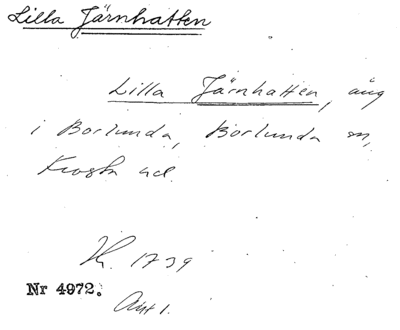 Lilla Järnhatten
Lilla Järnhatten, äng
i Borlunda, Borlunda sn,
Frosta hd.
H. 1739
Nr 4972.
Akt 1.